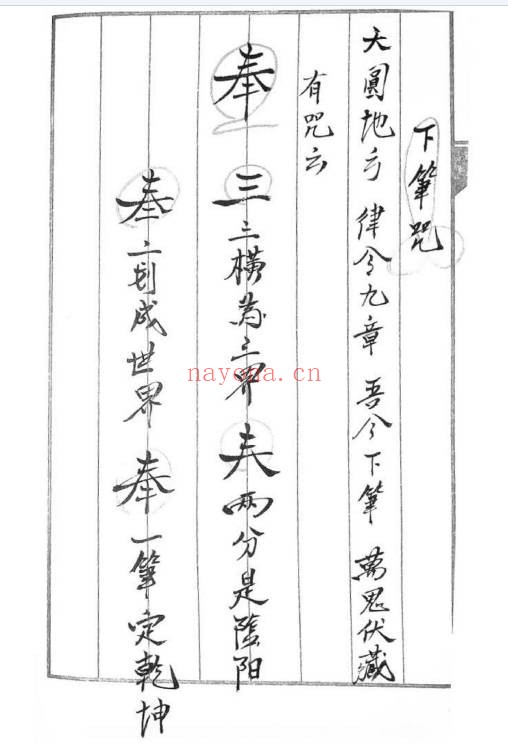 下筆咒
天圓地方 律令九章 吾今下筆 萬鬼伏藏
有咒云
奉 三 三橫為三界 夫 兩分是陰阳
二划成世界 奉 一筆定乾坤
nayona.cn